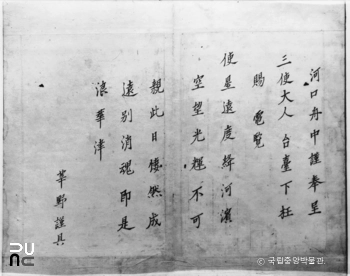 河口舟中謹奉呈
三使大人 台臺下枉
賜 電覧
使星遠度絳河濱
空望光輝不可
親此日悽然成
遠別消魂即是
浪華津
華野謹具
© 국립중앙박물관